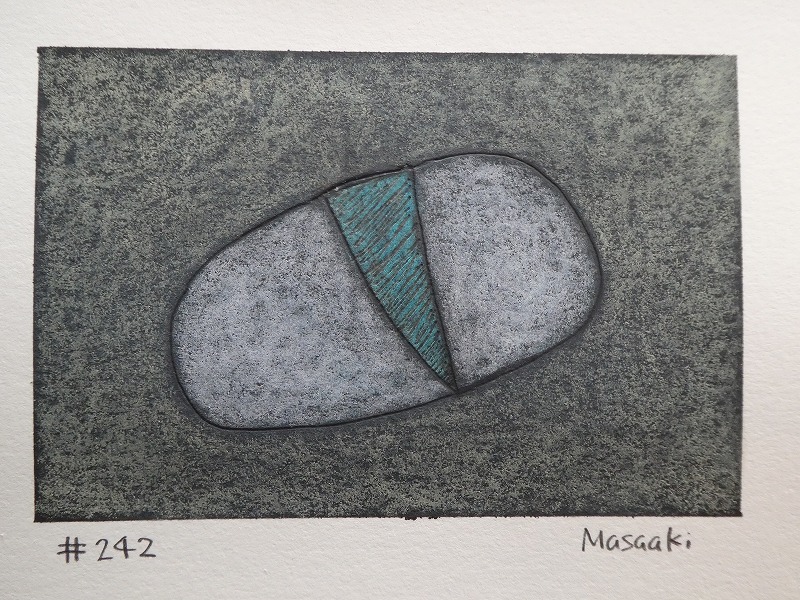 #242
Masaaki